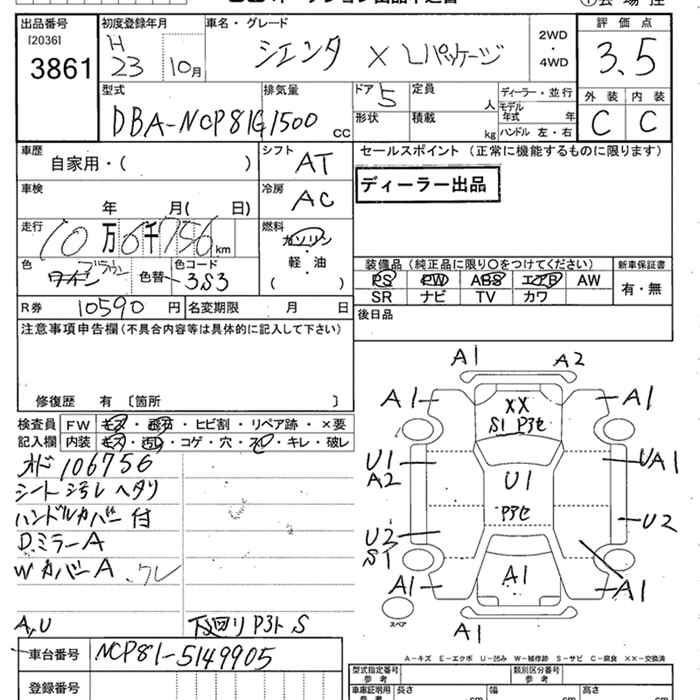 出品番号
[2036]
3861
初度登録年月
H
23 10月
車名・グレード
シエンタ X Lパッケージ
2WD
・
4WD
評価点
3.5
外装 内装
C C
型式
DBA-NCP81G
排気量
1500 cc
ドア 5
形状
定員 人
積載 kg
ディーラー・並行
モデル
年式 年
ハンドル 左・右
車歴
自家用・( )
シフト AT
車検
年 月( 日)
冷房 AC
走行
10万6千756 km
燃料
ガソリン
軽・油
( )
色
ワイン ブラウン
色替
色コード
3S3
R券 10590 円
名変期限 月 日
セールスポイント (正常に機能するものに限ります)
ディーラー出品
装備品 (純正品に限り〇をつけてください)
新車保証書
PS PW ABS エアB AW
有・無
SR ナビ TV カワ
後日品
注意事項申告欄 (不具合内容等は具体的に記入して下さい)
修復歴 有 〔箇所 〕
検査員 FW キズ・飛石・ヒビ割・リペア跡・×要
記入欄 内装 キズ・汚れ・コゲ・穴・スレ・キレ・破レ
オド 106756
シート汚レ ヘタリ
ハンドルカバー付
D.ミラーA
W カバーA クレ
A,U 下回り P3ト S
車台番号 NCP81-5149905
登録番号
A1 A2
A1 XX A1
S1 P3セ
U1 U1 UA1
A2
P3セ
U2 U2
S1
A1 A1 A1
スペア
A1
A-キズ E-エクボ U-凹み W-補修跡 S-サビ C-腐食 XX-交換済
型式指定番号
参考
類別区分番号
参考
車庫証明用
参考
長さ cm 幅 cm 高さ cm